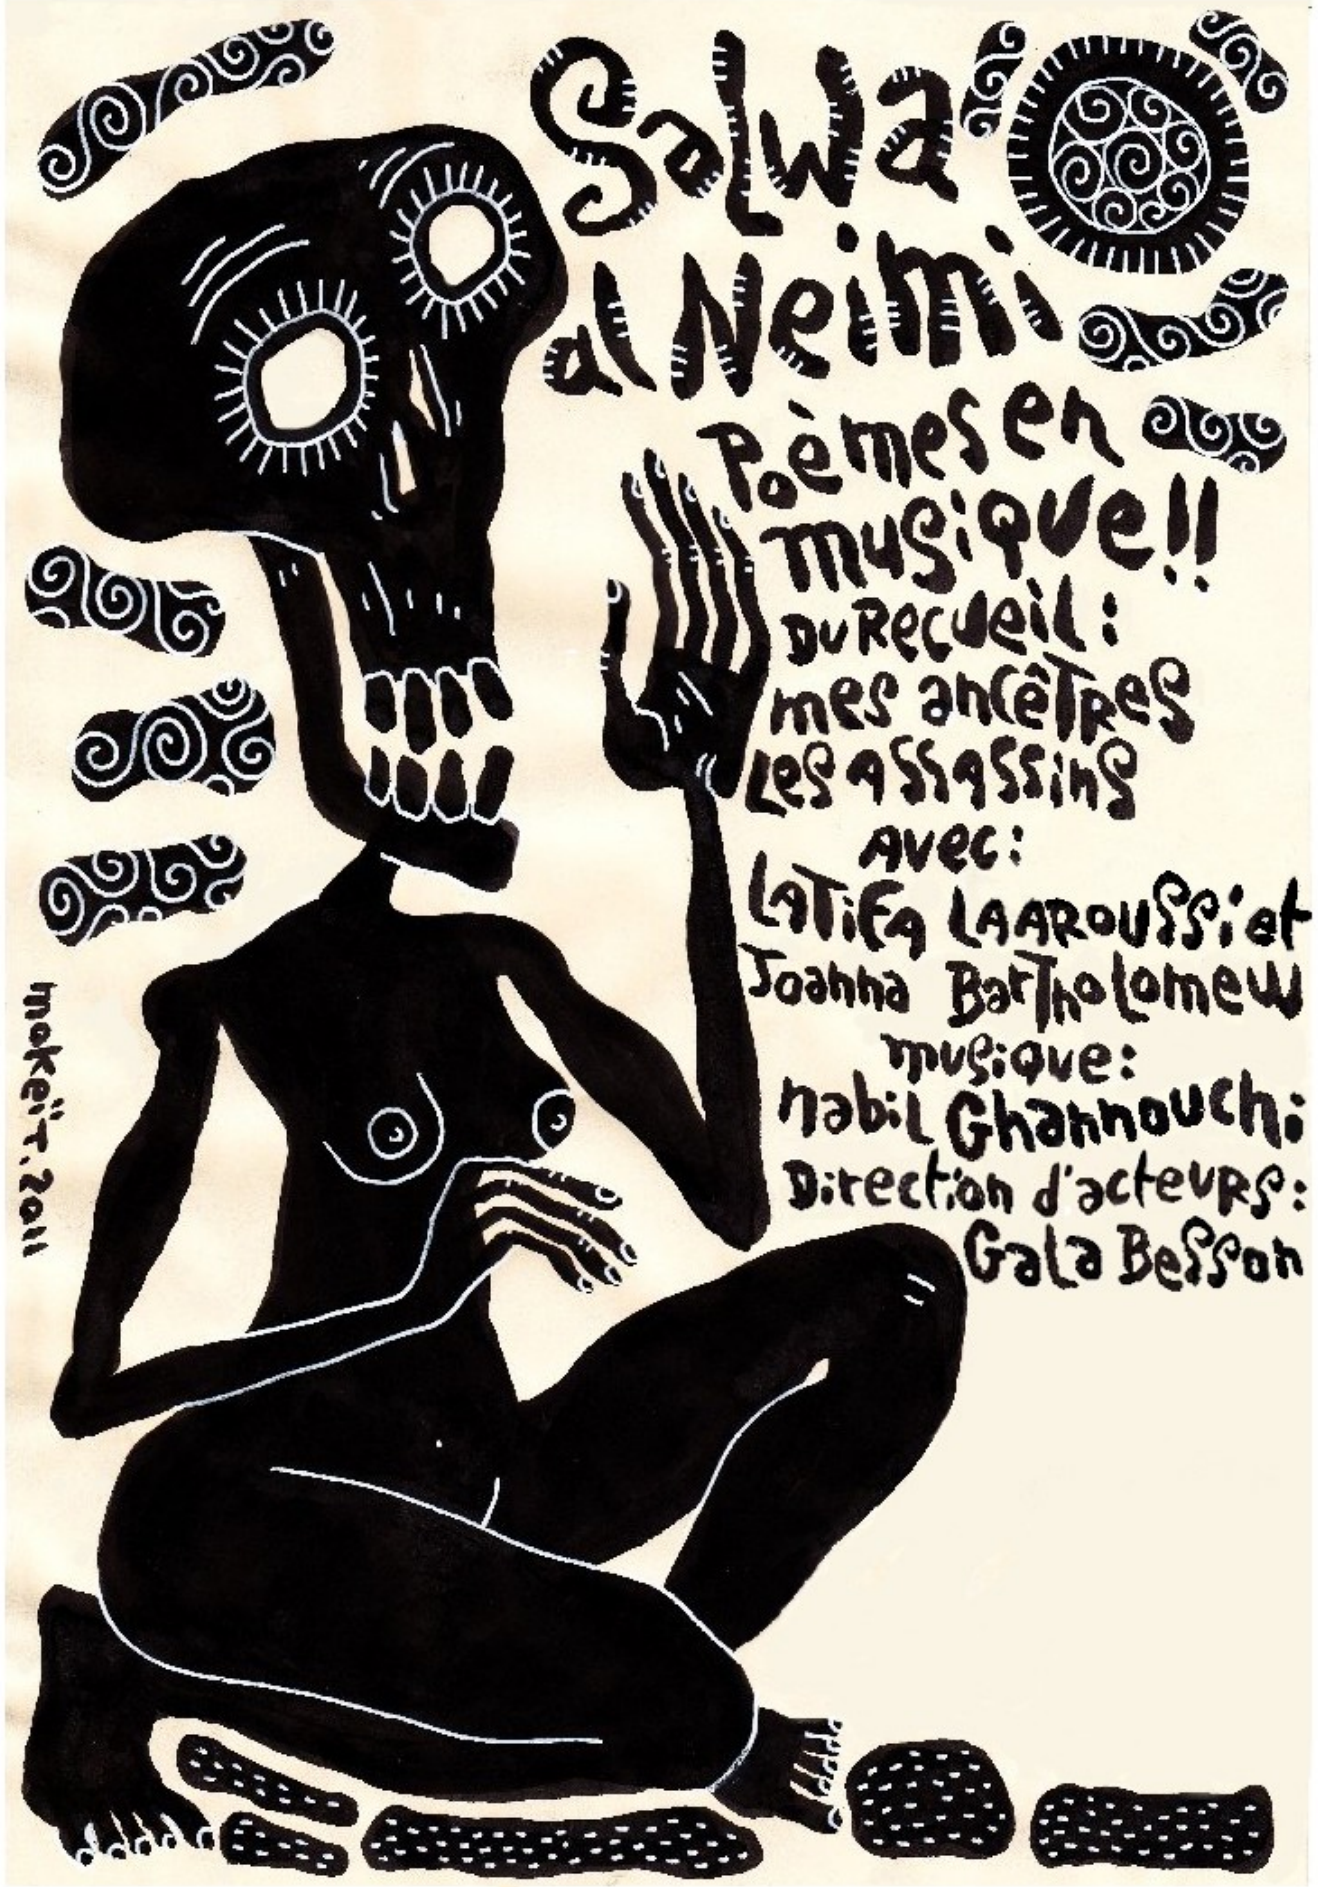 Salwa
al Neimi
Poèmes en
musique!!
DU Reçueil:
mes ancêtRes
Les Assassins
Avec:
LATifA LAARoussi et
Joanna Bartholomew
musique:
nabil Ghannouchi
Direction d'acteuRs:
Gala Besson
mokeït.2011